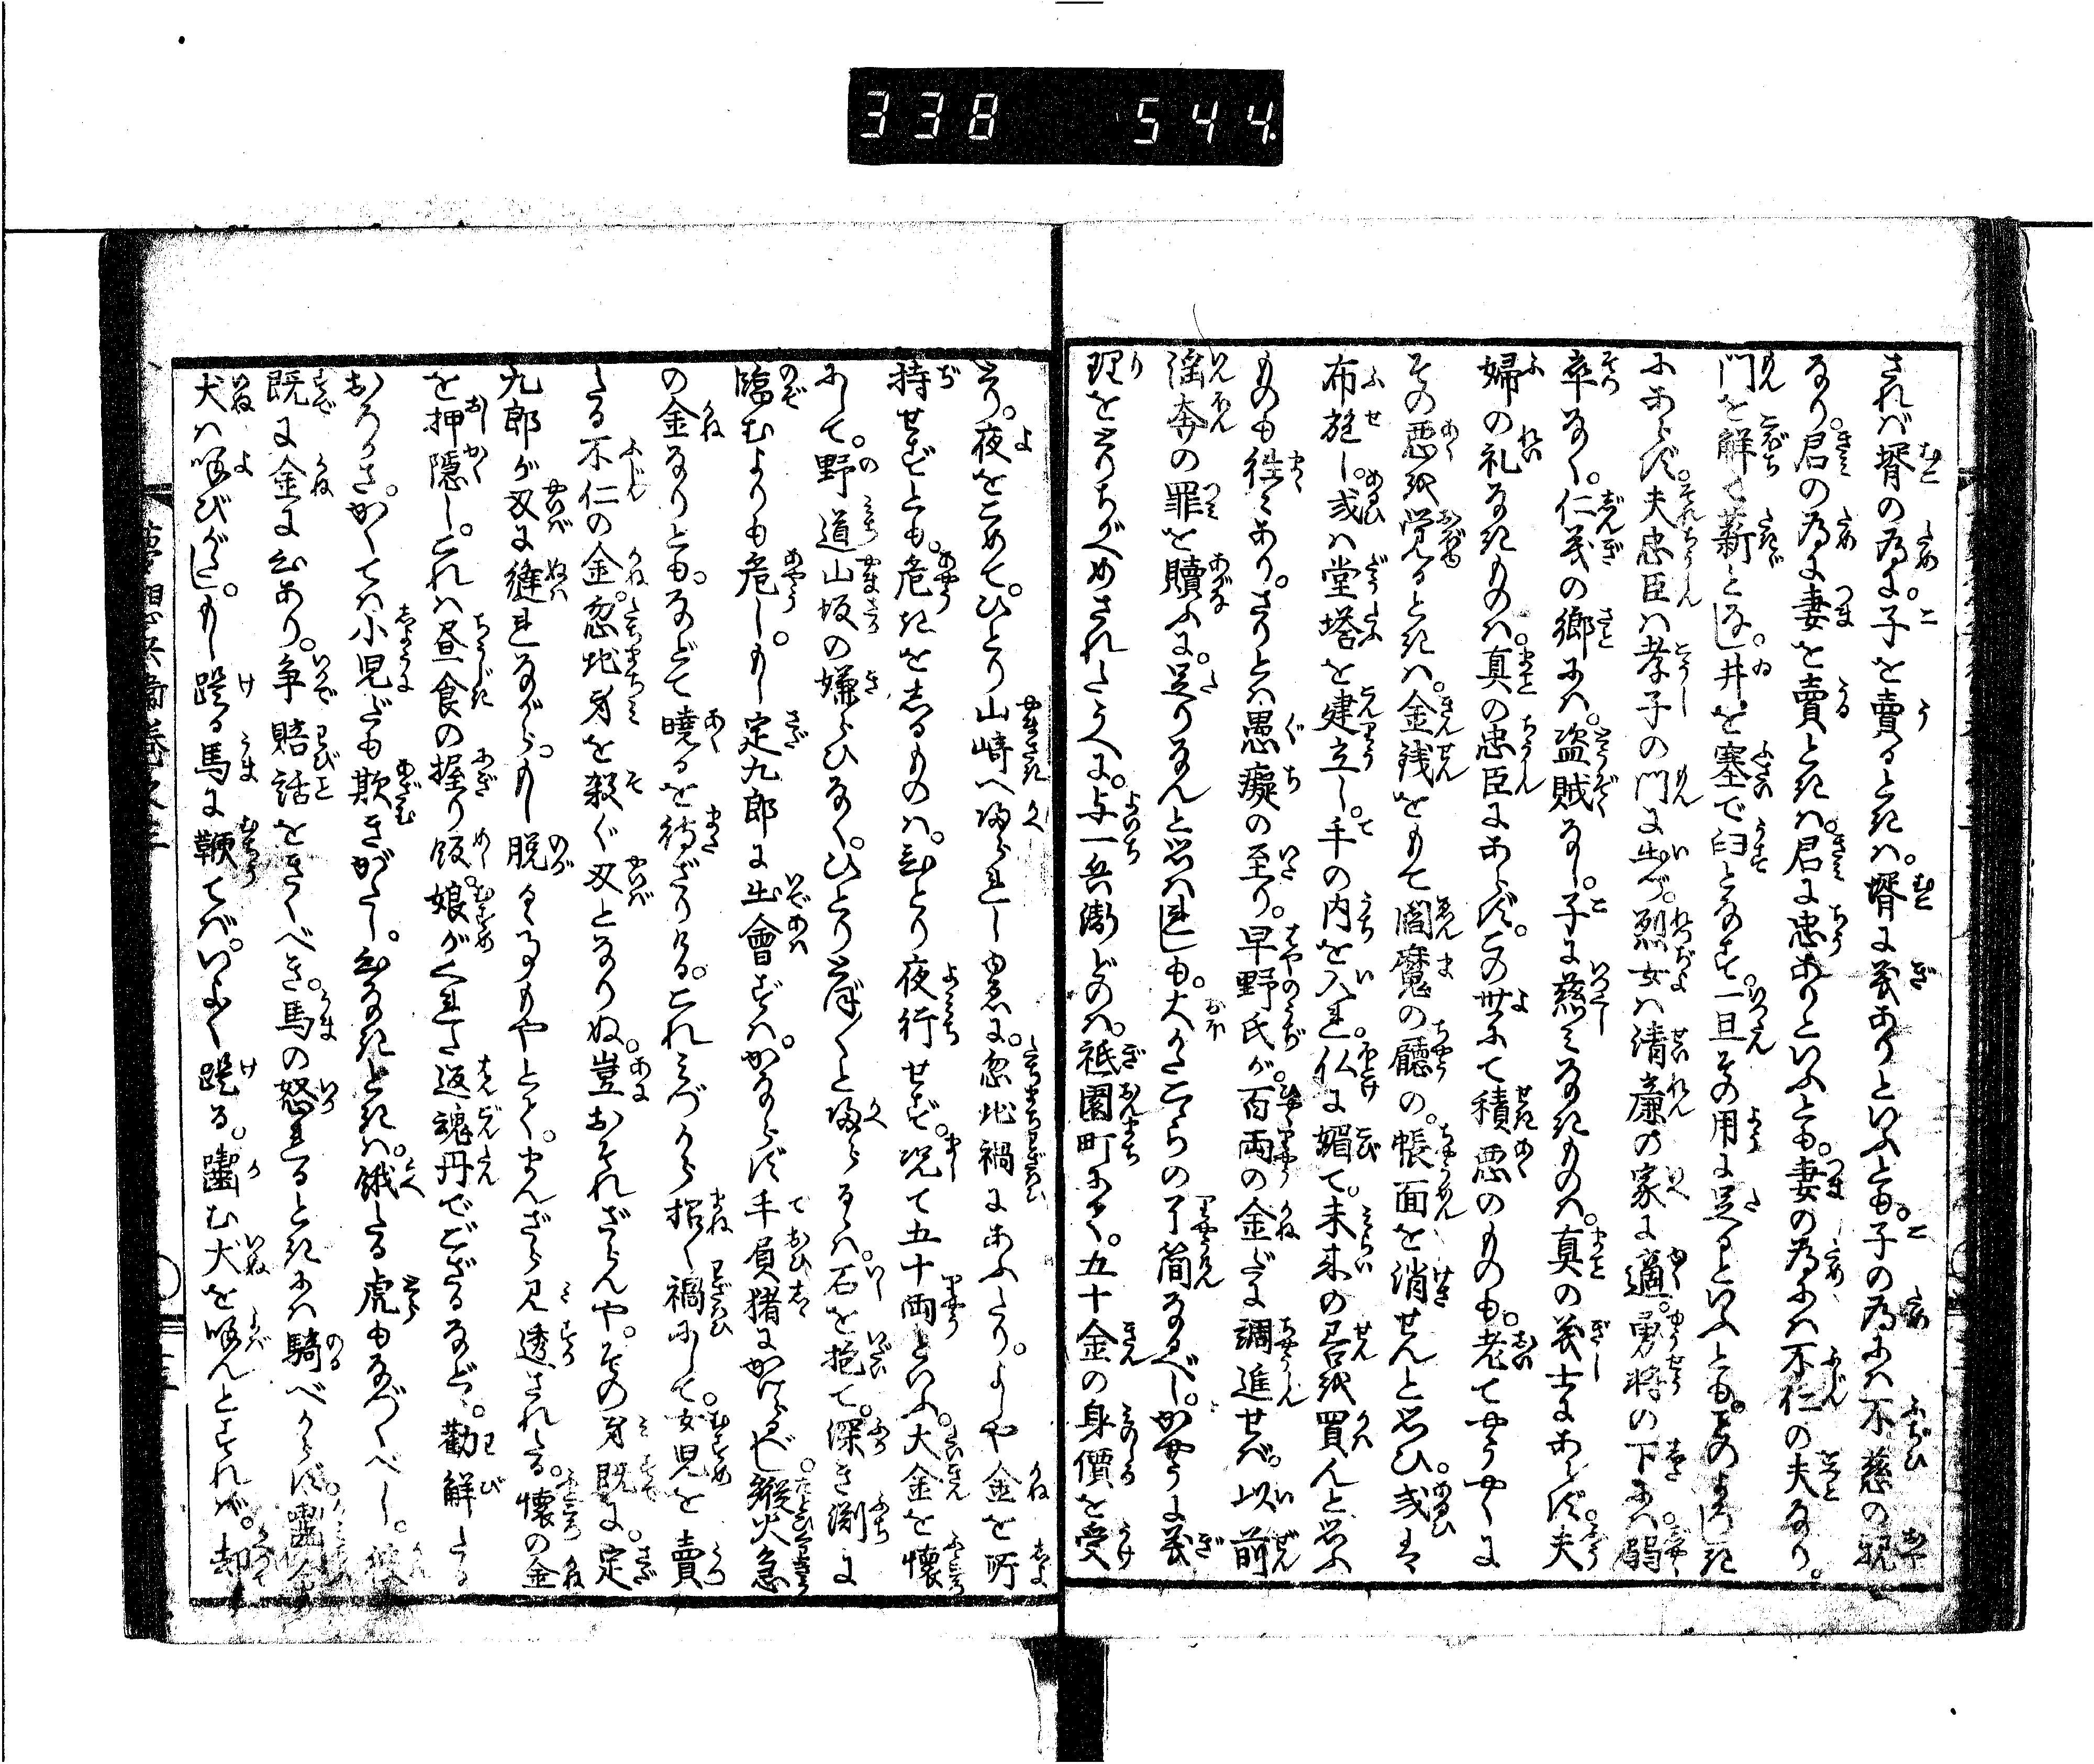 338 544
されバ壻の為に。子を賣るときハ。壻に義ありといふとも。子の為にハ不慈の親
なり。君の為に妻を賣ときハ。君に忠ありといふとも。妻の為にハ不仁の夫なり。
門を解て薪となし。井を塞で臼となす。一旦その用に足るといふとも。そのよしき
にあらず。夫忠臣ハ孝子の門に出づ。烈女ハ清廉の家に適。勇将の下にハ。弱
卒なく。仁義の郷にハ。盗賊なし。子に慈みなきものハ。真の義士にあらず。夫
婦の礼なきものハ。真の忠臣にあらず。この世にて積悪のものも。老てやうやくに
その悪を覚るときハ。金銭をもて閻魔の廳の。帳面を消せんと思ひ。或は
布施し。或ハ堂塔を建立し。手の内を入れ。仏に媚て。未来の善を買んと思ふ
ものも往々あり。さりとハ愚癡の至り。早野氏が。百両の金だに調進せバ。以前
淫奔の罪を贖ふに。足りなんと思ハれしも。大かたこゝらの了簡なるべし。かやうに義
理をとりちがへめされたうへに。与一兵衛どのハ。祇園町にて。五十金の身價を受
とり。夜をこめて。ひとり山崎へ帰られしゆゑに。忽地禍にあふたり。よしや金を所
持せずとも。危きをしるものハ。ひとり夜行せず。况て五十両といふ。大金を懐
にして。野道山坂の嫌らひなく。ひとりとぼ〳〵と帰らるゝハ。石を抱て。深き渕に
臨むよりも危し。もし定九郎に出會ずハ。かならず手負猪にかけらるべし。縦火急
の金なりとも。などて曉るを待ざりける。これみづから招く禍にして。女児を賣
たる不仁の金。忽地身を殺ぐ刄となりぬ。豈おそれざらんや。その身既に。定
九郎が刄に縫れながら。もし脱るゝ事もやとて。まんざら見透されたる。懐の金
を押隠し。これハ昼食の握り飯。娘がくれた返魂丹でござるなどゝ。勸解たる
おろかさ。かくてハ小児だも欺きがたし。ひもなきときハ。餓たる虎もなづくべし。彼
既に金に心あり。争賠話をきくべき。馬の怒れるときにハ騎べからず。齧
犬ハ喚びがたし。もし蹴る馬に鞭てバ。いよ〳〵蹴る。齧む犬を喚んとすれバ。却
夢想兵衛巻之三